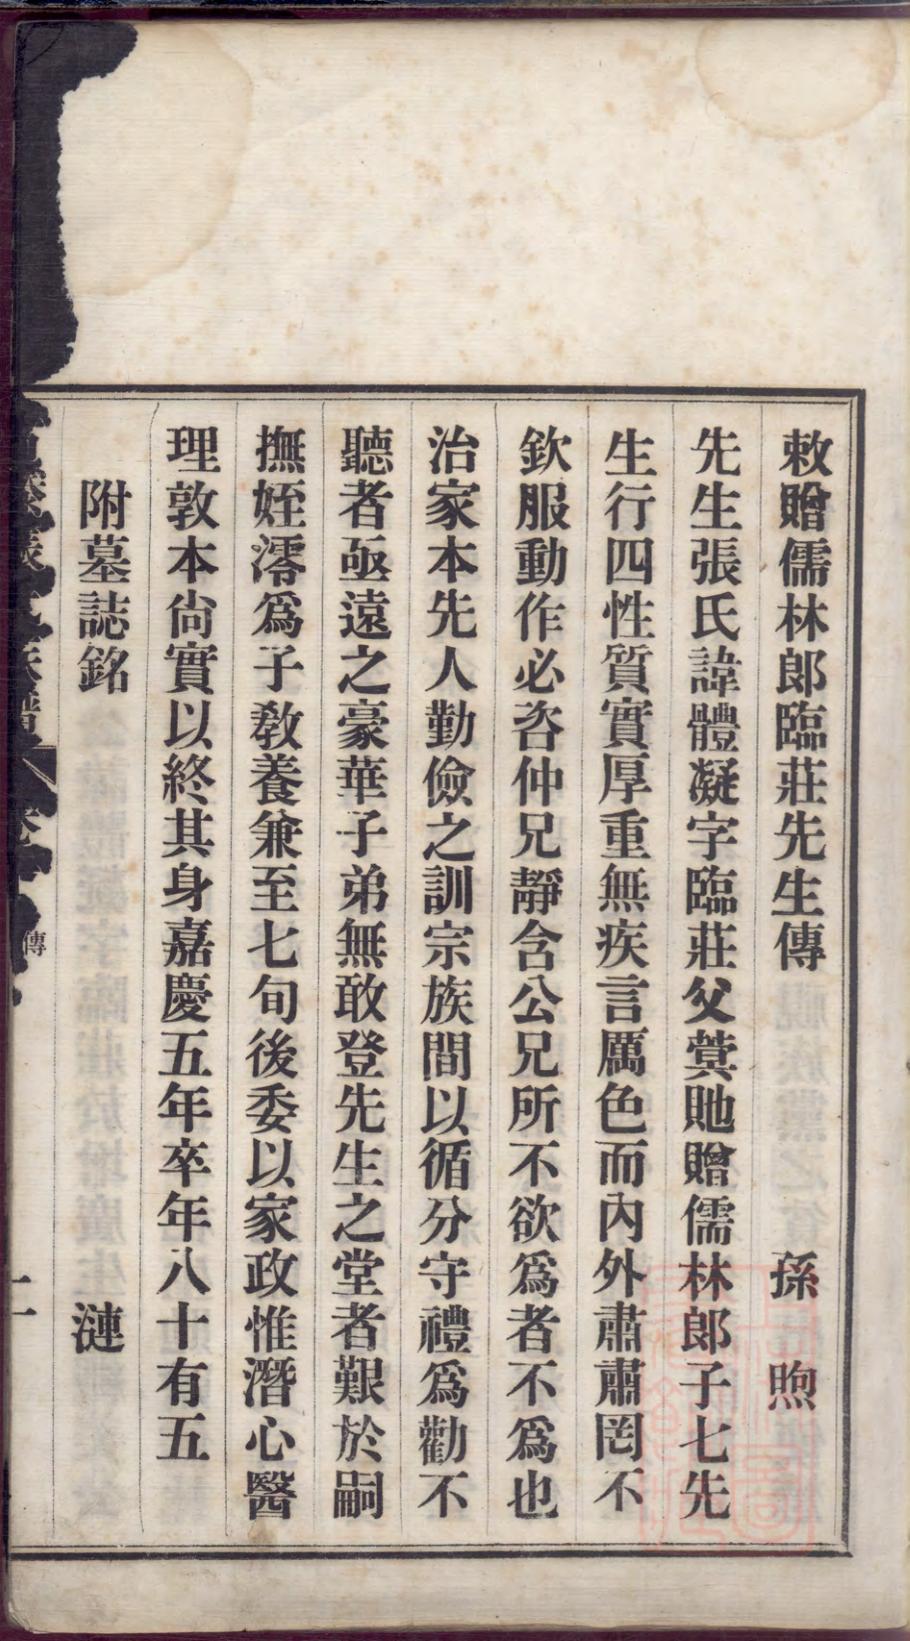 敕贈儒林郎臨莊先生傳　孫　煦
先生張氏諱體凝字臨莊父蓂貤贈儒林郎子七先
生行四性質實厚重無疾言厲色而內外肅肅罔不
欽服動作必咨仲兄靜含公兄所不欲爲者不爲也
治家本先人勤儉之訓宗族間以循分守禮爲勸不
聽者亟遠之豪華子弟無敢登先生之堂者艱於嗣
撫姪澪爲子敎養兼至七旬後委以家政惟潛心醫
理敦本尙實以終其身嘉慶五年卒年八十有五
附墓誌銘　漣
傳